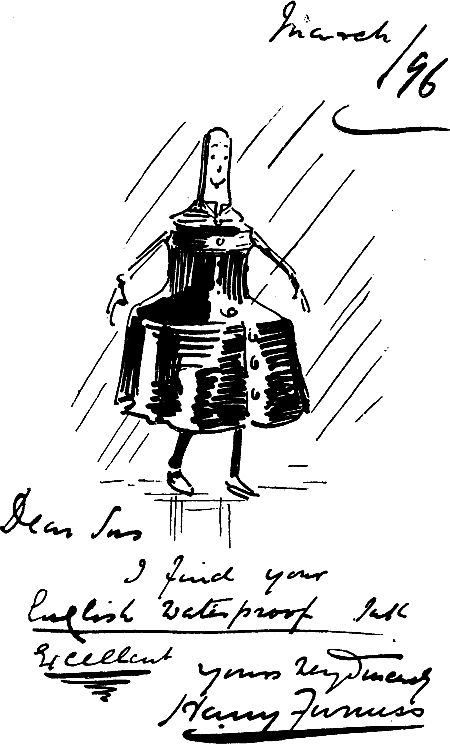 March
/96
Dear Sirs
I find your
English Waterproof Ink
Excellent
yours very sincerely
Harry Furniss